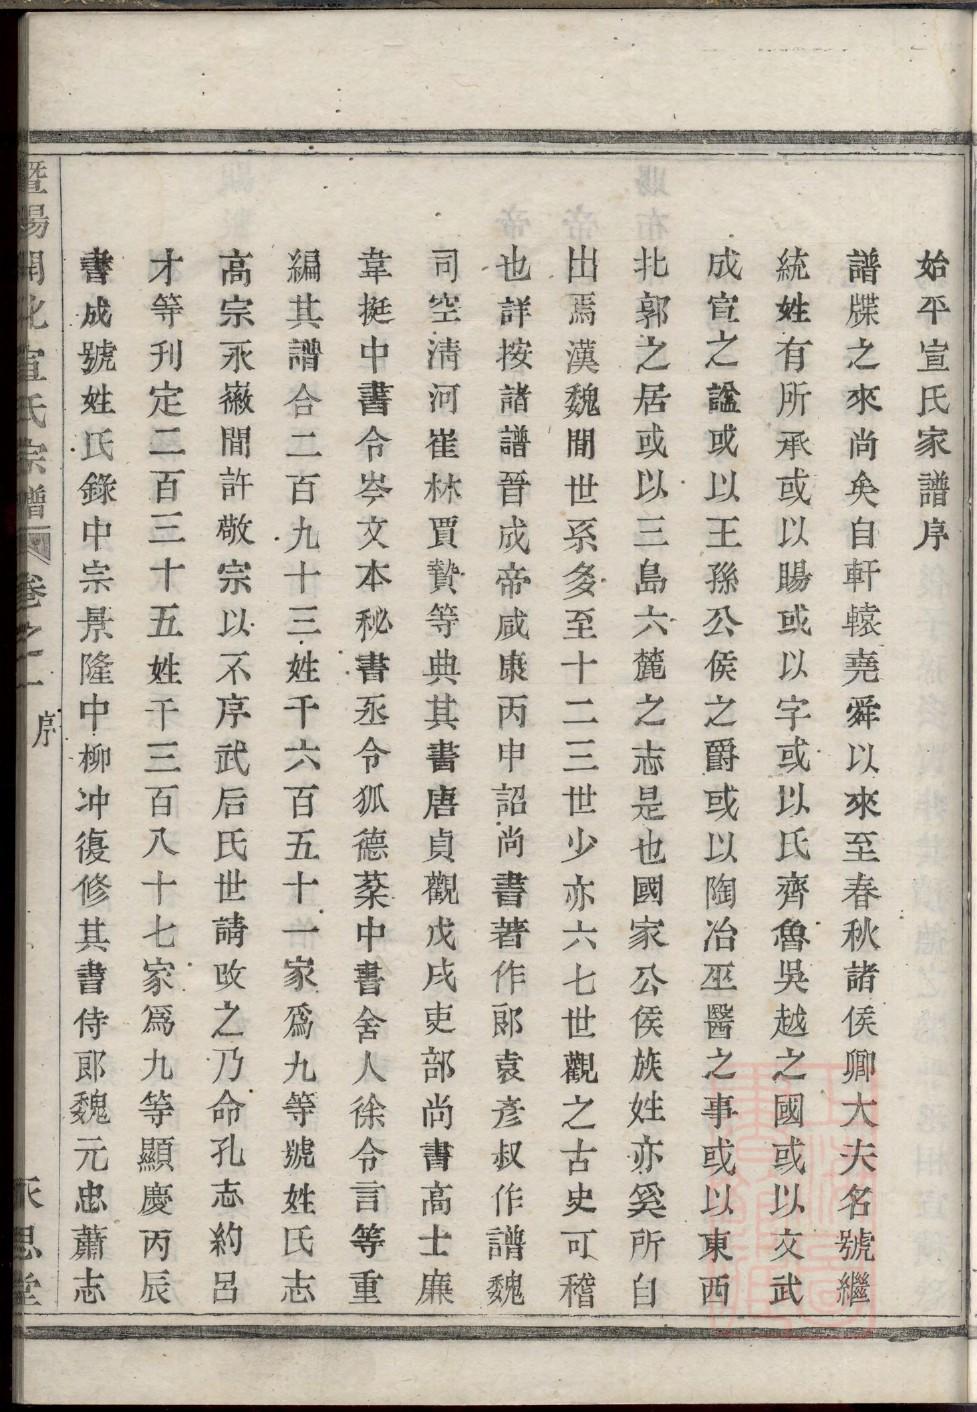 始平宣氏家譜序
譜牒之來尚矣自軒轅堯舜以來至春秋諸侯卿大夫名號繼
統姓有所承或以賜或以字或以氏齊魯吳越之國或以文武
成宣之謚或以王孫公侯之爵或以陶冶巫醫之事或以東西
北郭之居或以三島六麓之志是也國家公侯族姓亦奚所自
出焉漢魏間世系多至十二三世少亦六七世觀之古史可稽
也詳按諸譜晉成帝咸康丙申詔尚書著作郎袁彥叔作譜魏
司空淸河崔林賈贄等典其書唐貞觀戊戌吏部尚書高士廉
韋挺中書令岑文本秘書丞令狐德棻中書舍人徐令言等重
編其譜合二百九十三姓千六百五十一家爲九等號姓氏志
高宗永徽間許敬宗以不序武后氏世請改之乃命孔志約呂
才等刊定二百三十五姓千三百八十七家爲九等顯慶丙辰
書成號姓氏錄中宗景隆中柳冲復修其書侍郎魏元忠蕭志
暨陽開化宣氏宗譜 卷之一 序 永思堂